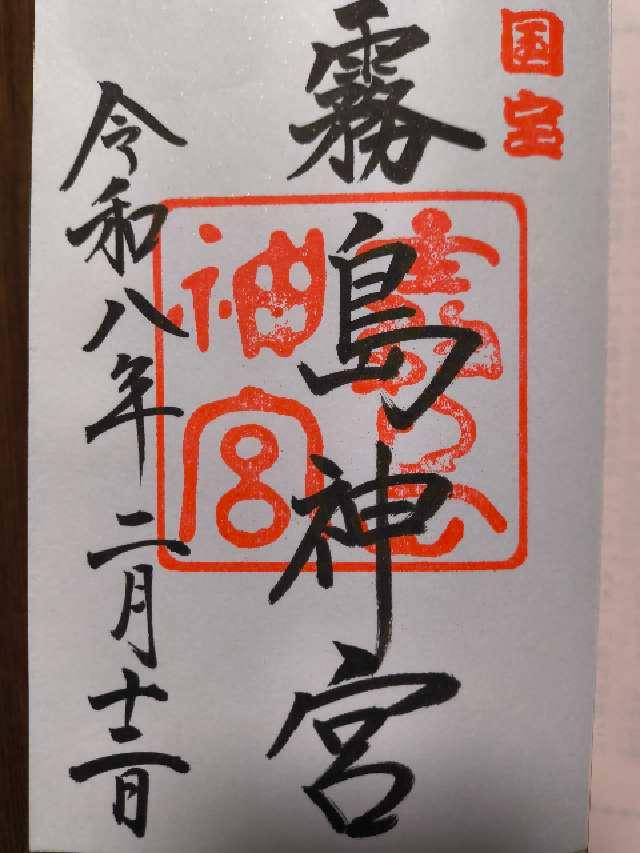 国宝
霧島神宮
神宮
令和八年二月十二日